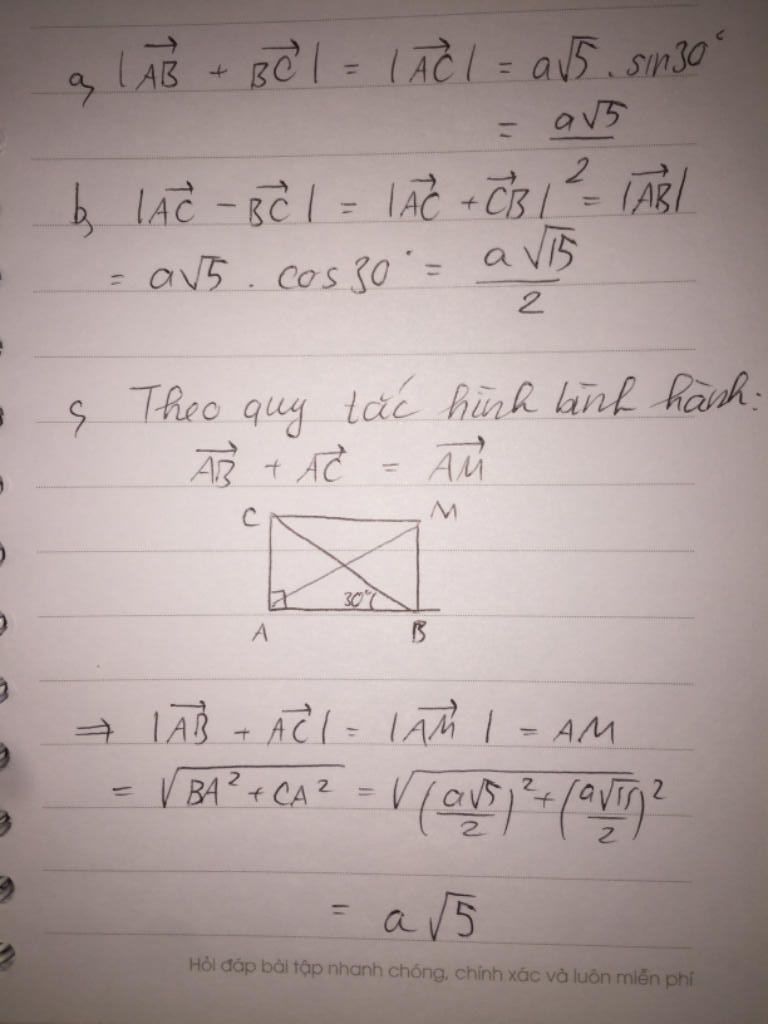 a, |AB→ + BC→| = |AC→| = a√5 . sin30°
= a√5/2
b, |AC→ - BC→| = |AC→ + CB→| = |AB→|
= a√5 . cos30° = a√15/2
c, Theo quy tắc hình bình hành:
AB→ + AC→ = AM→
C M
30°
A B
⇒ |AB→ + AC→| = |AM→| = AM
= √(BA² + CA²) = √((a√5/2)² + (a√15/2)²)
= a√5
Hỏi đáp bài tập nhanh chóng, chính xác và luôn miễn phí